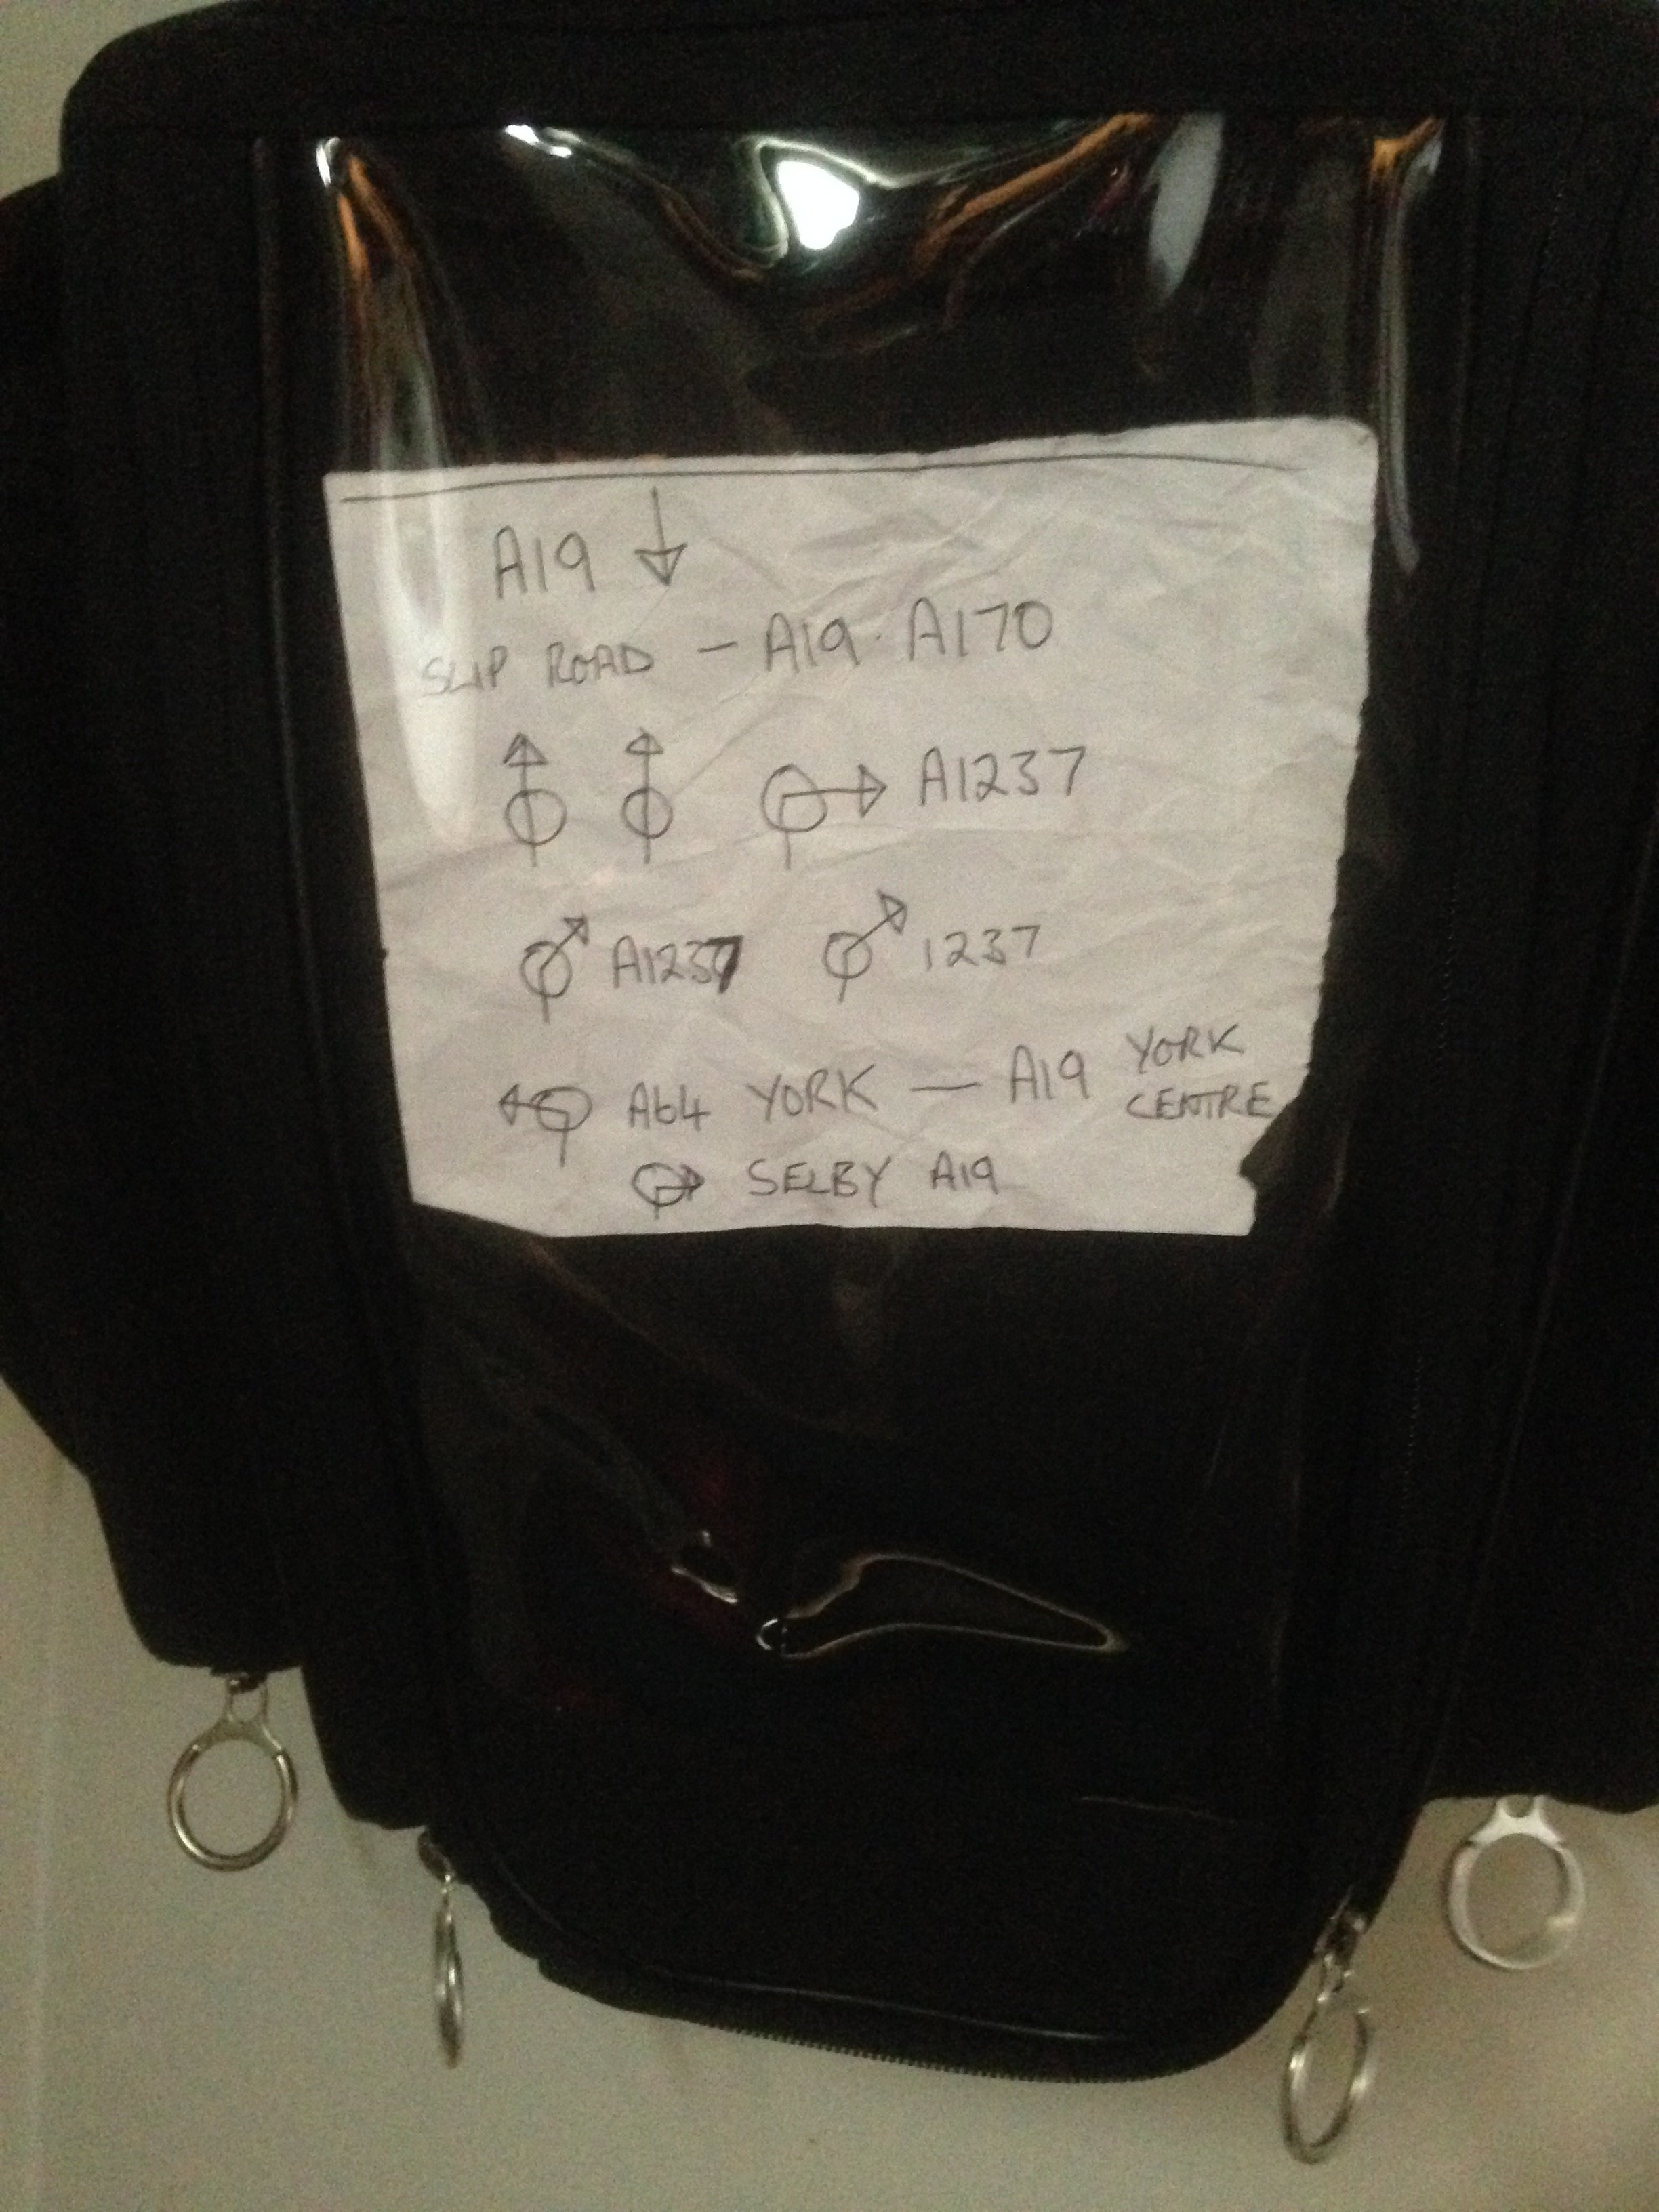 A19
SLIP ROAD - A19. A170
A1237
A1237 1237
A64 YORK — A19 YORK CENTRE
SELBY A19